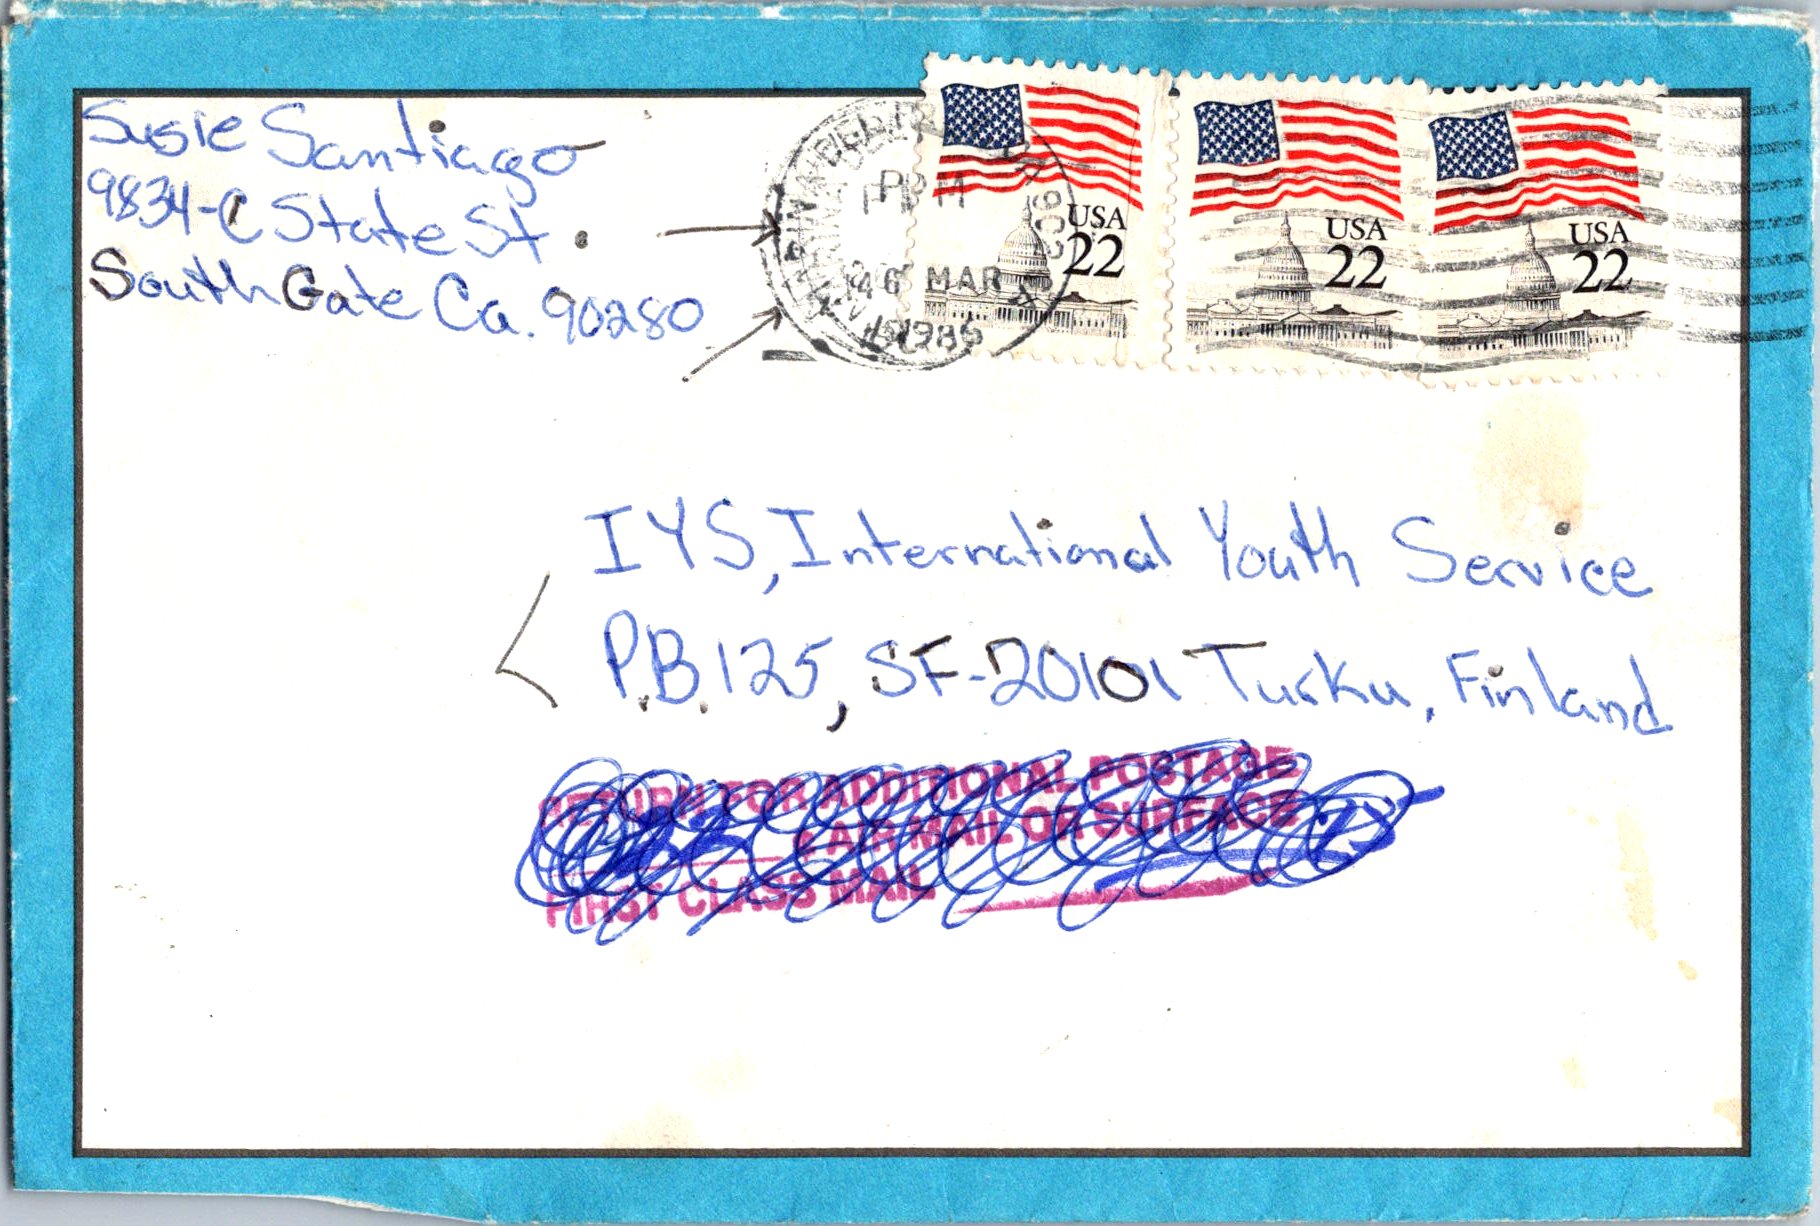 Susie Santiago
9834-C State St.
South Gate Ca. 90280
PM
MAR
USA
22
USA
22
USA
22
IYS, International Youth Service
P.B. 125, SF-20101 Turku, Finland
RETURN FOR ADDITIONAL POSTAGE
AIR MAIL OR SURFACE
FIRST CLASS MAIL